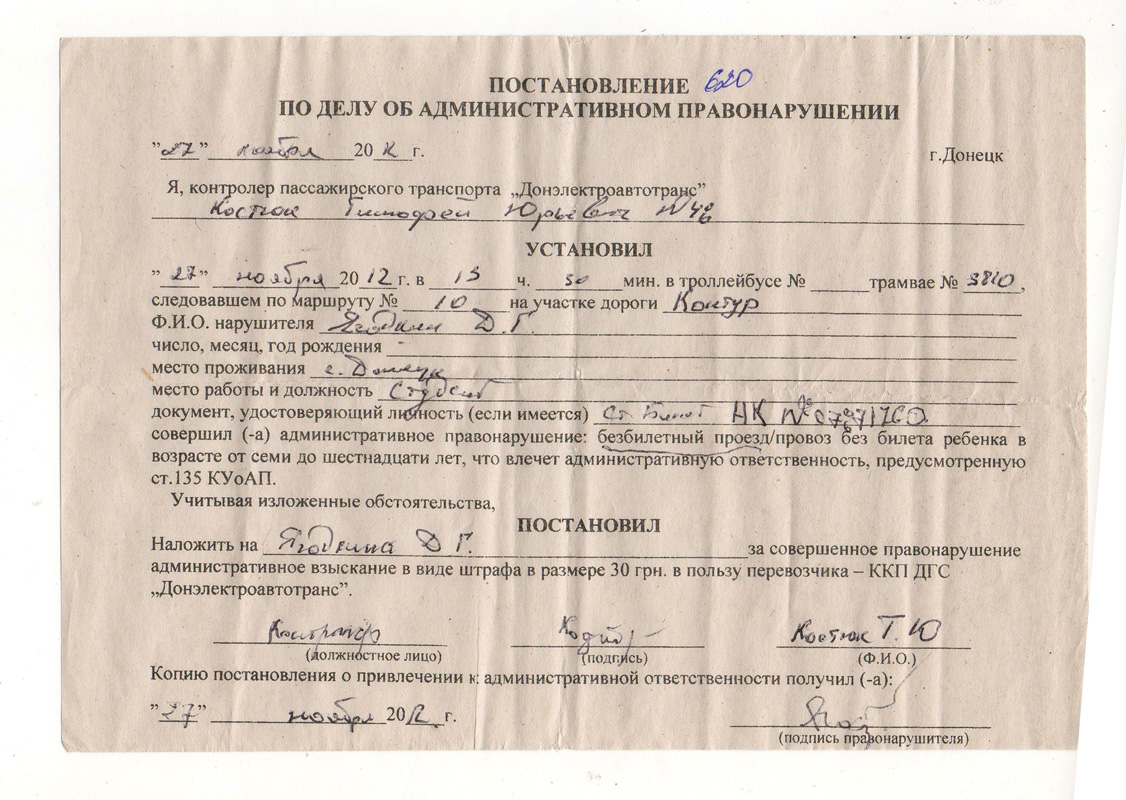 ПОСТАНОВЛЕНИЕ 620
ПО ДЕЛУ ОБ АДМИНИСТРАТИВНОМ ПРАВОНАРУШЕНИИ
"27" ноября 2012 г. г.Донецк
Я, контролер пассажирского транспорта „Донэлектроавтотранс”
Костюк Тимофей Юрьевич №46
УСТАНОВИЛ
"27" ноября 2012 г. в 13 ч. 50 мин. в троллейбусе № ______ трамвае № 3810,
следовавшем по маршруту № 10 на участке дороги Контур
Ф.И.О. нарушителя Ягодкин Д. Г.
число, месяц, год рождения -
место проживания г. Донецк
место работы и должность Студент
документ, удостоверяющий личность (если имеется) Ст. Билет НК №
совершил (-а) административное правонарушение: безбилетный проезд/провоз без билета ребенка в
возрасте от семи до шестнадцати лет, что влечет административную ответственность, предусмотренную
ст.135 КУоАП.
Учитывая изложенные обстоятельства,
ПОСТАНОВИЛ
Наложить на Ягодкина Д Г. за совершенное правонарушение
административное взыскание в виде штрафа в размере 30 грн. в пользу перевозчика – ККП ДГС
„Донэлектроавтотранс”.
Контролёр Костюк Т. Ю
(должностное лицо) (подпись) (Ф.И.О.)
Копию постановления о привлечении к административной ответственности получил (-а):
"27" ноября 2012 г.
(подпись правонарушителя)